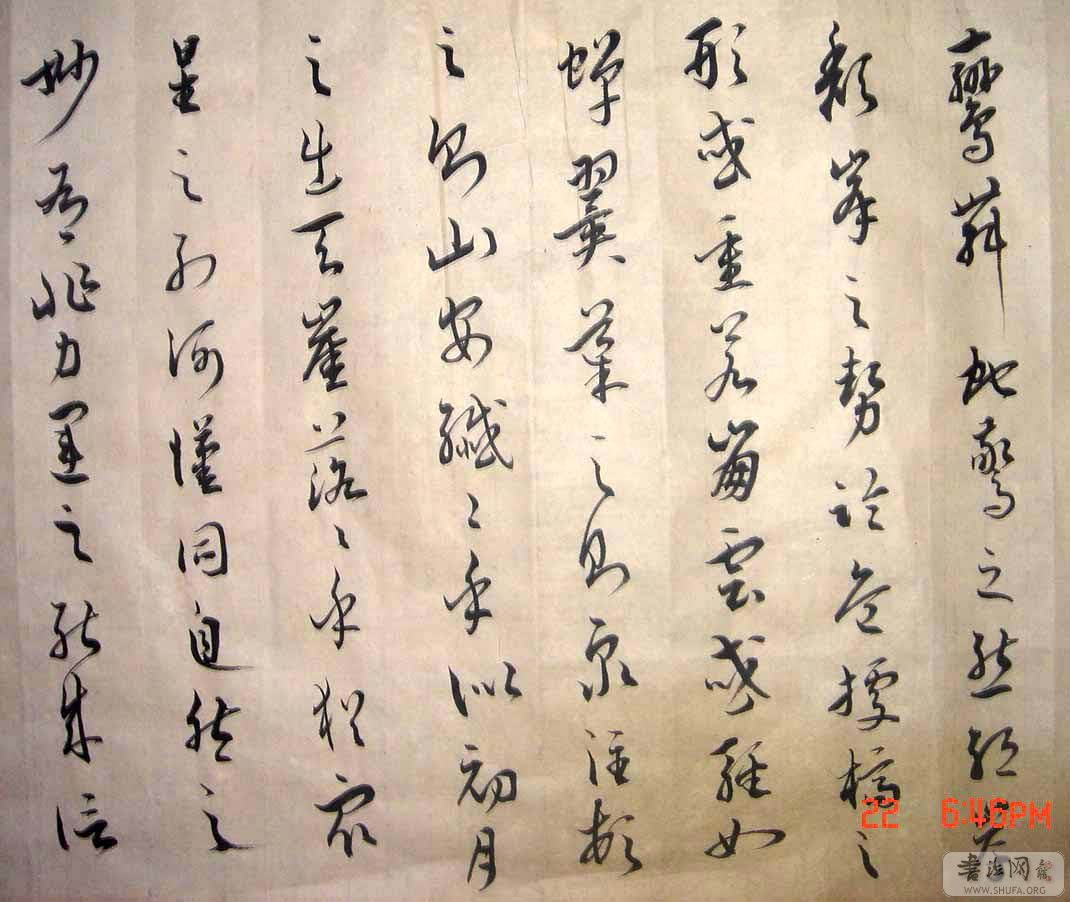 鸞舞蛇驚之態絕岸
頹峯之勢臨危據槁之
形或重若崩雲或輕如
蟬翼導之則泉注頓
之則山安纖〻乎似初月
之出天崖落〻乎猶眾
星之列河漢同自然之
妙有非力運之能成信
22 6:46PM
书法网
WWW.SHUFA.ORG